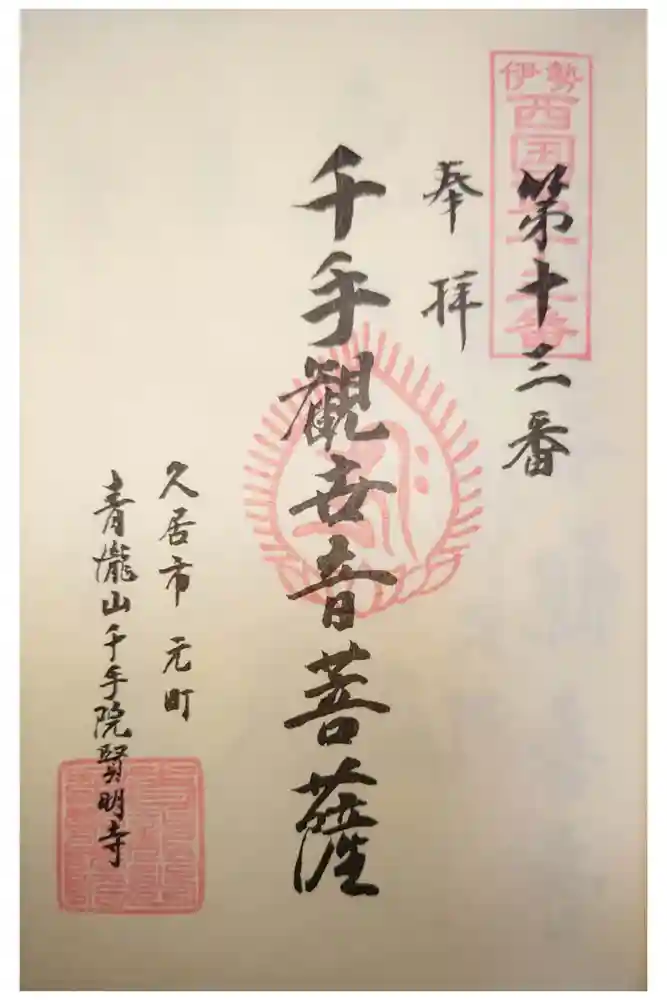 伊勢
西国第十三番
第十三番
奉拝
千手觀世音菩薩
久居市元町
青瀧山千手院賢明寺